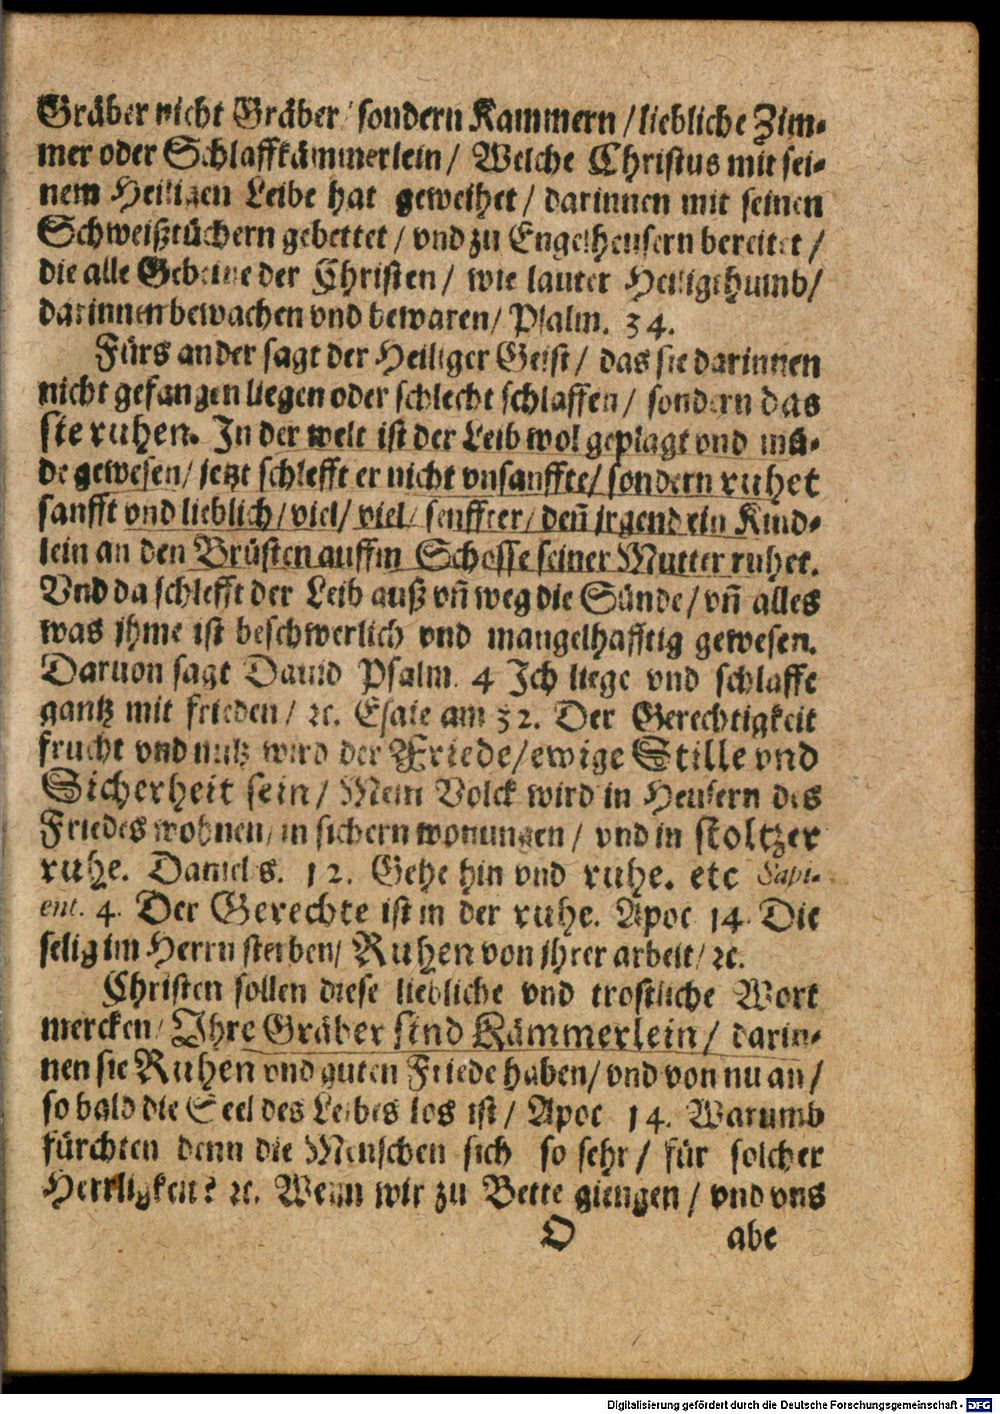 Gräber nicht Gräber / sondern Kammern / liebliche Zim-
mer oder Schlaffkämmerlein / Welche Christus mit sei-
nem Heiligen Leibe hat geweihet / darinnen mit seinen
Schweißtüchern gebettet / vnd zu Engelheusern bereitet /
die alle Gebeine der Christen / wie lauter Heiligthumb /
darinnen bewachen vnd bewaren / Psalm. 34.
Fürs ander sagt der Heiliger Geist / das sie darinnen
nicht gefangen liegen oder schlecht schlaffen / sondern das
sie ruhen. In der welt ist der Leib wol geplagt vnd mü-
de gewesen / jetzt schlefft er nicht vnsanffte / sondern ruhet
sanfft vnd lieblich / viel / viel / senffter / deñ jrgend ein Kind-
lein an den Brüsten auffm Schosse seiner Mutter ruhet.
Vnd da schlefft der Leib auß vñ weg die Sünde / vñ alles
was jhme ist beschwerlich vnd mangelhafftig gewesen.
Daruon sagt Dauid Psalm. 4 Ich liege vnd schlaffe
gantz mit frieden / ꝛc. Esaie am 32. Der Gerechtigkeit
frucht vnd nutz wird der Friede / ewige Stille vnd
Sicherheit sein / Mein Volck wird in Heusern des
Friedes wohnen / in sichern wonungen / vnd in stoltzer
ruhe. Daniels. 12. Gehe hin vnd ruhe. etc Sapi-
ent. 4. Der Gerechte ist in der ruhe. Apoc 14. Die
selig im Herrn sterben / Ruhen von jhrer arbeit / ꝛc.
Christen sollen diese liebliche vnd trostliche Wort
mercken / Ihre Gräber sind Kämmerlein / darin-
nen sie Ruhen vnd guten Friede haben / vnd von nu an /
so bald die Seel des Leibes los ist / Apoc 14. Warumb
fürchten denn die Menschen sich so sehr / für solcher
Herrligkeit? ꝛc. Wenn wir zu Bette giengen / vnd vns
O abe
Digitalisierung gefördert durch die Deutsche Forschungsgemeinschaft - DFG